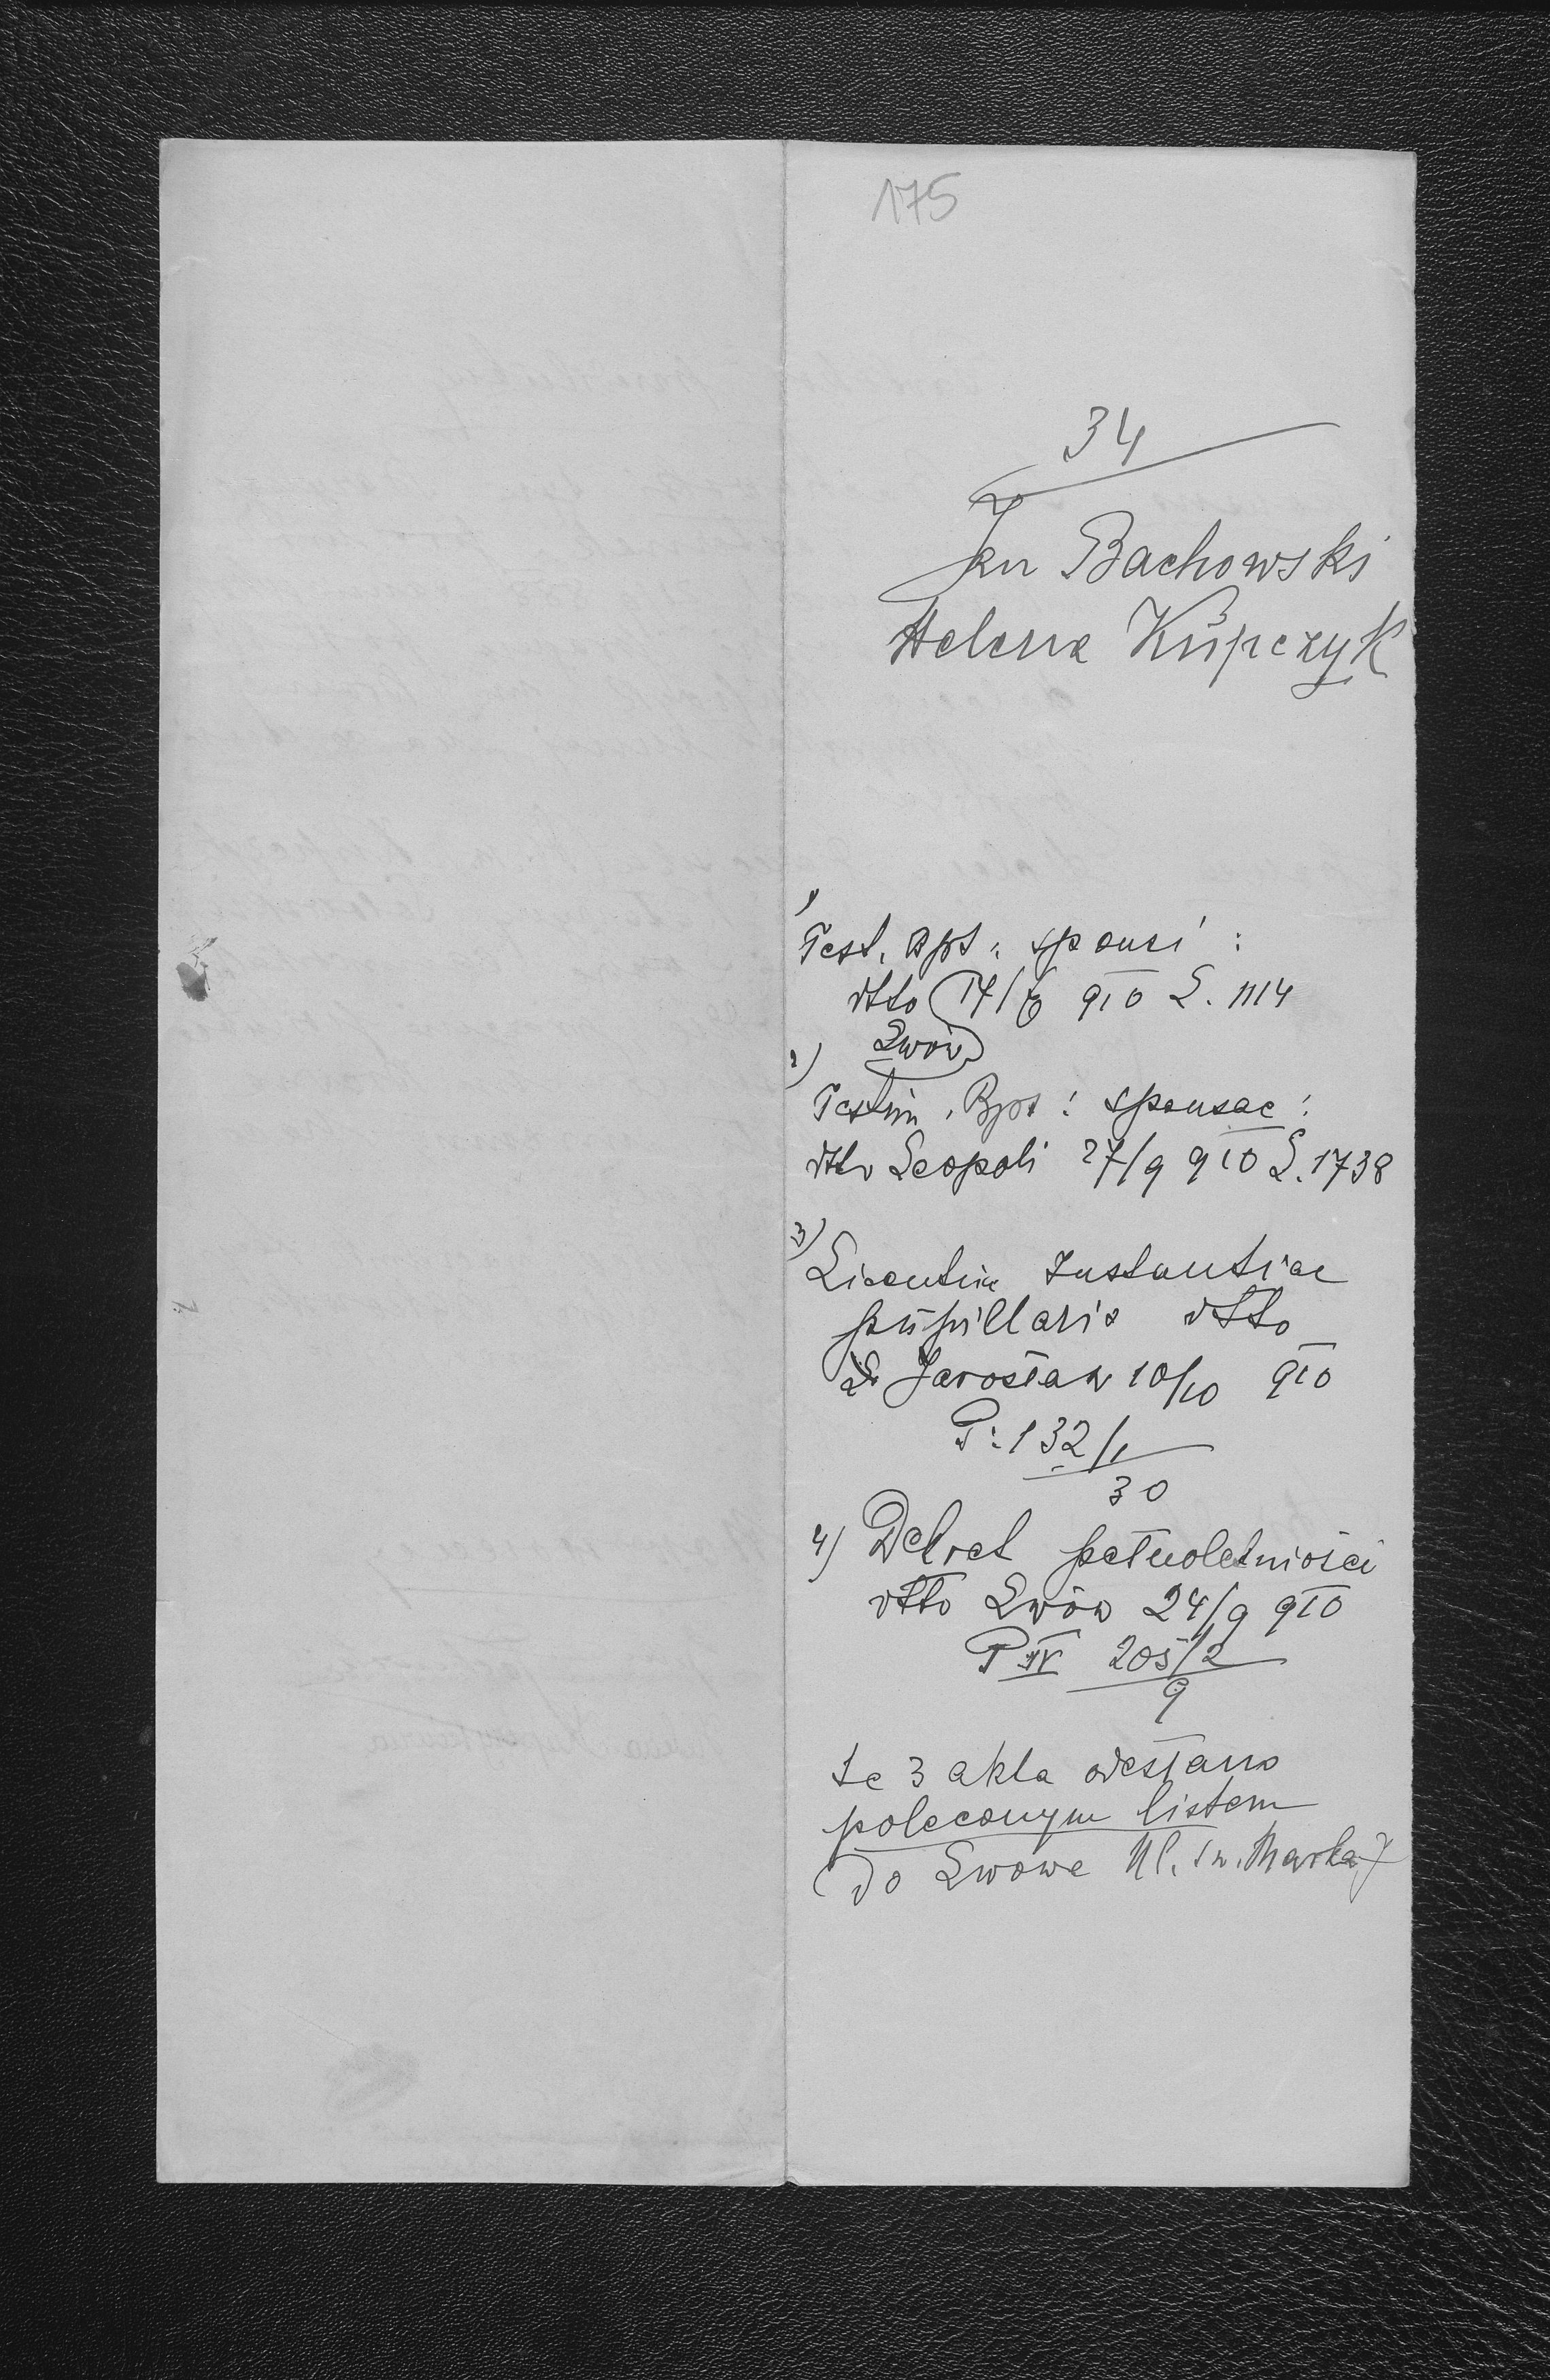 175
34
Jan Bachowski
Helena Kupczyk
1)
Test. Bpt: sponsi:
dtto 14/6 910 L. 1114
Lwów
2)
Testim. Bpt: sponsae:
dtto Leopoli 27/9 910 L. 1738
3)
Licentia Instantiae
pupillaris dtto
Jarosław 10/10 910
P: 132/1
30
4) Dekret pełnoletniości
dtto Lwów 24/9 910
P IV 205/2
9
te 3 akta odesłano
poleconym listem
do Lwowa Ul. św. Marka 7